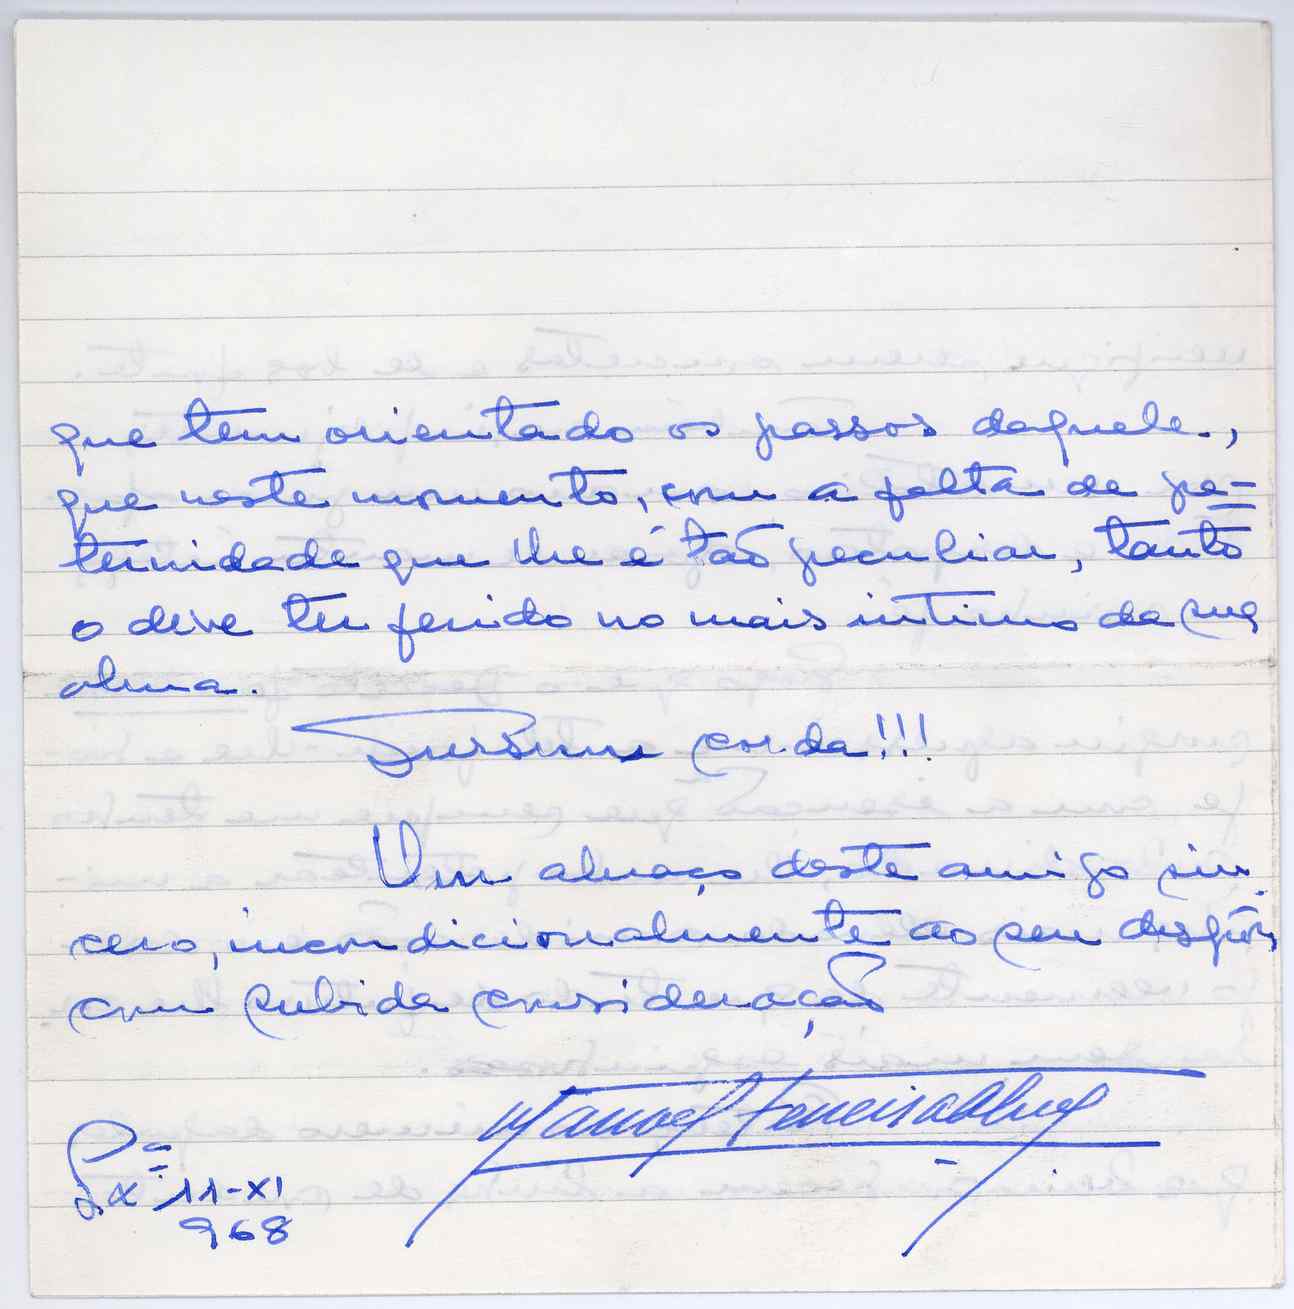 que tem orientado os passos daquele.,
que neste momento, com a falta de pa-
ternidade que lhe é tão peculiar, tanto
o deve ter ferido no mais intimo da sua
alma.
Sursum corda!!!
Um abraço deste amigo sin-
cero, incondicionalmente ao seu dispôr,
com subida consideração
Manoel Ferreira Alves
Lxª 11-XI
968